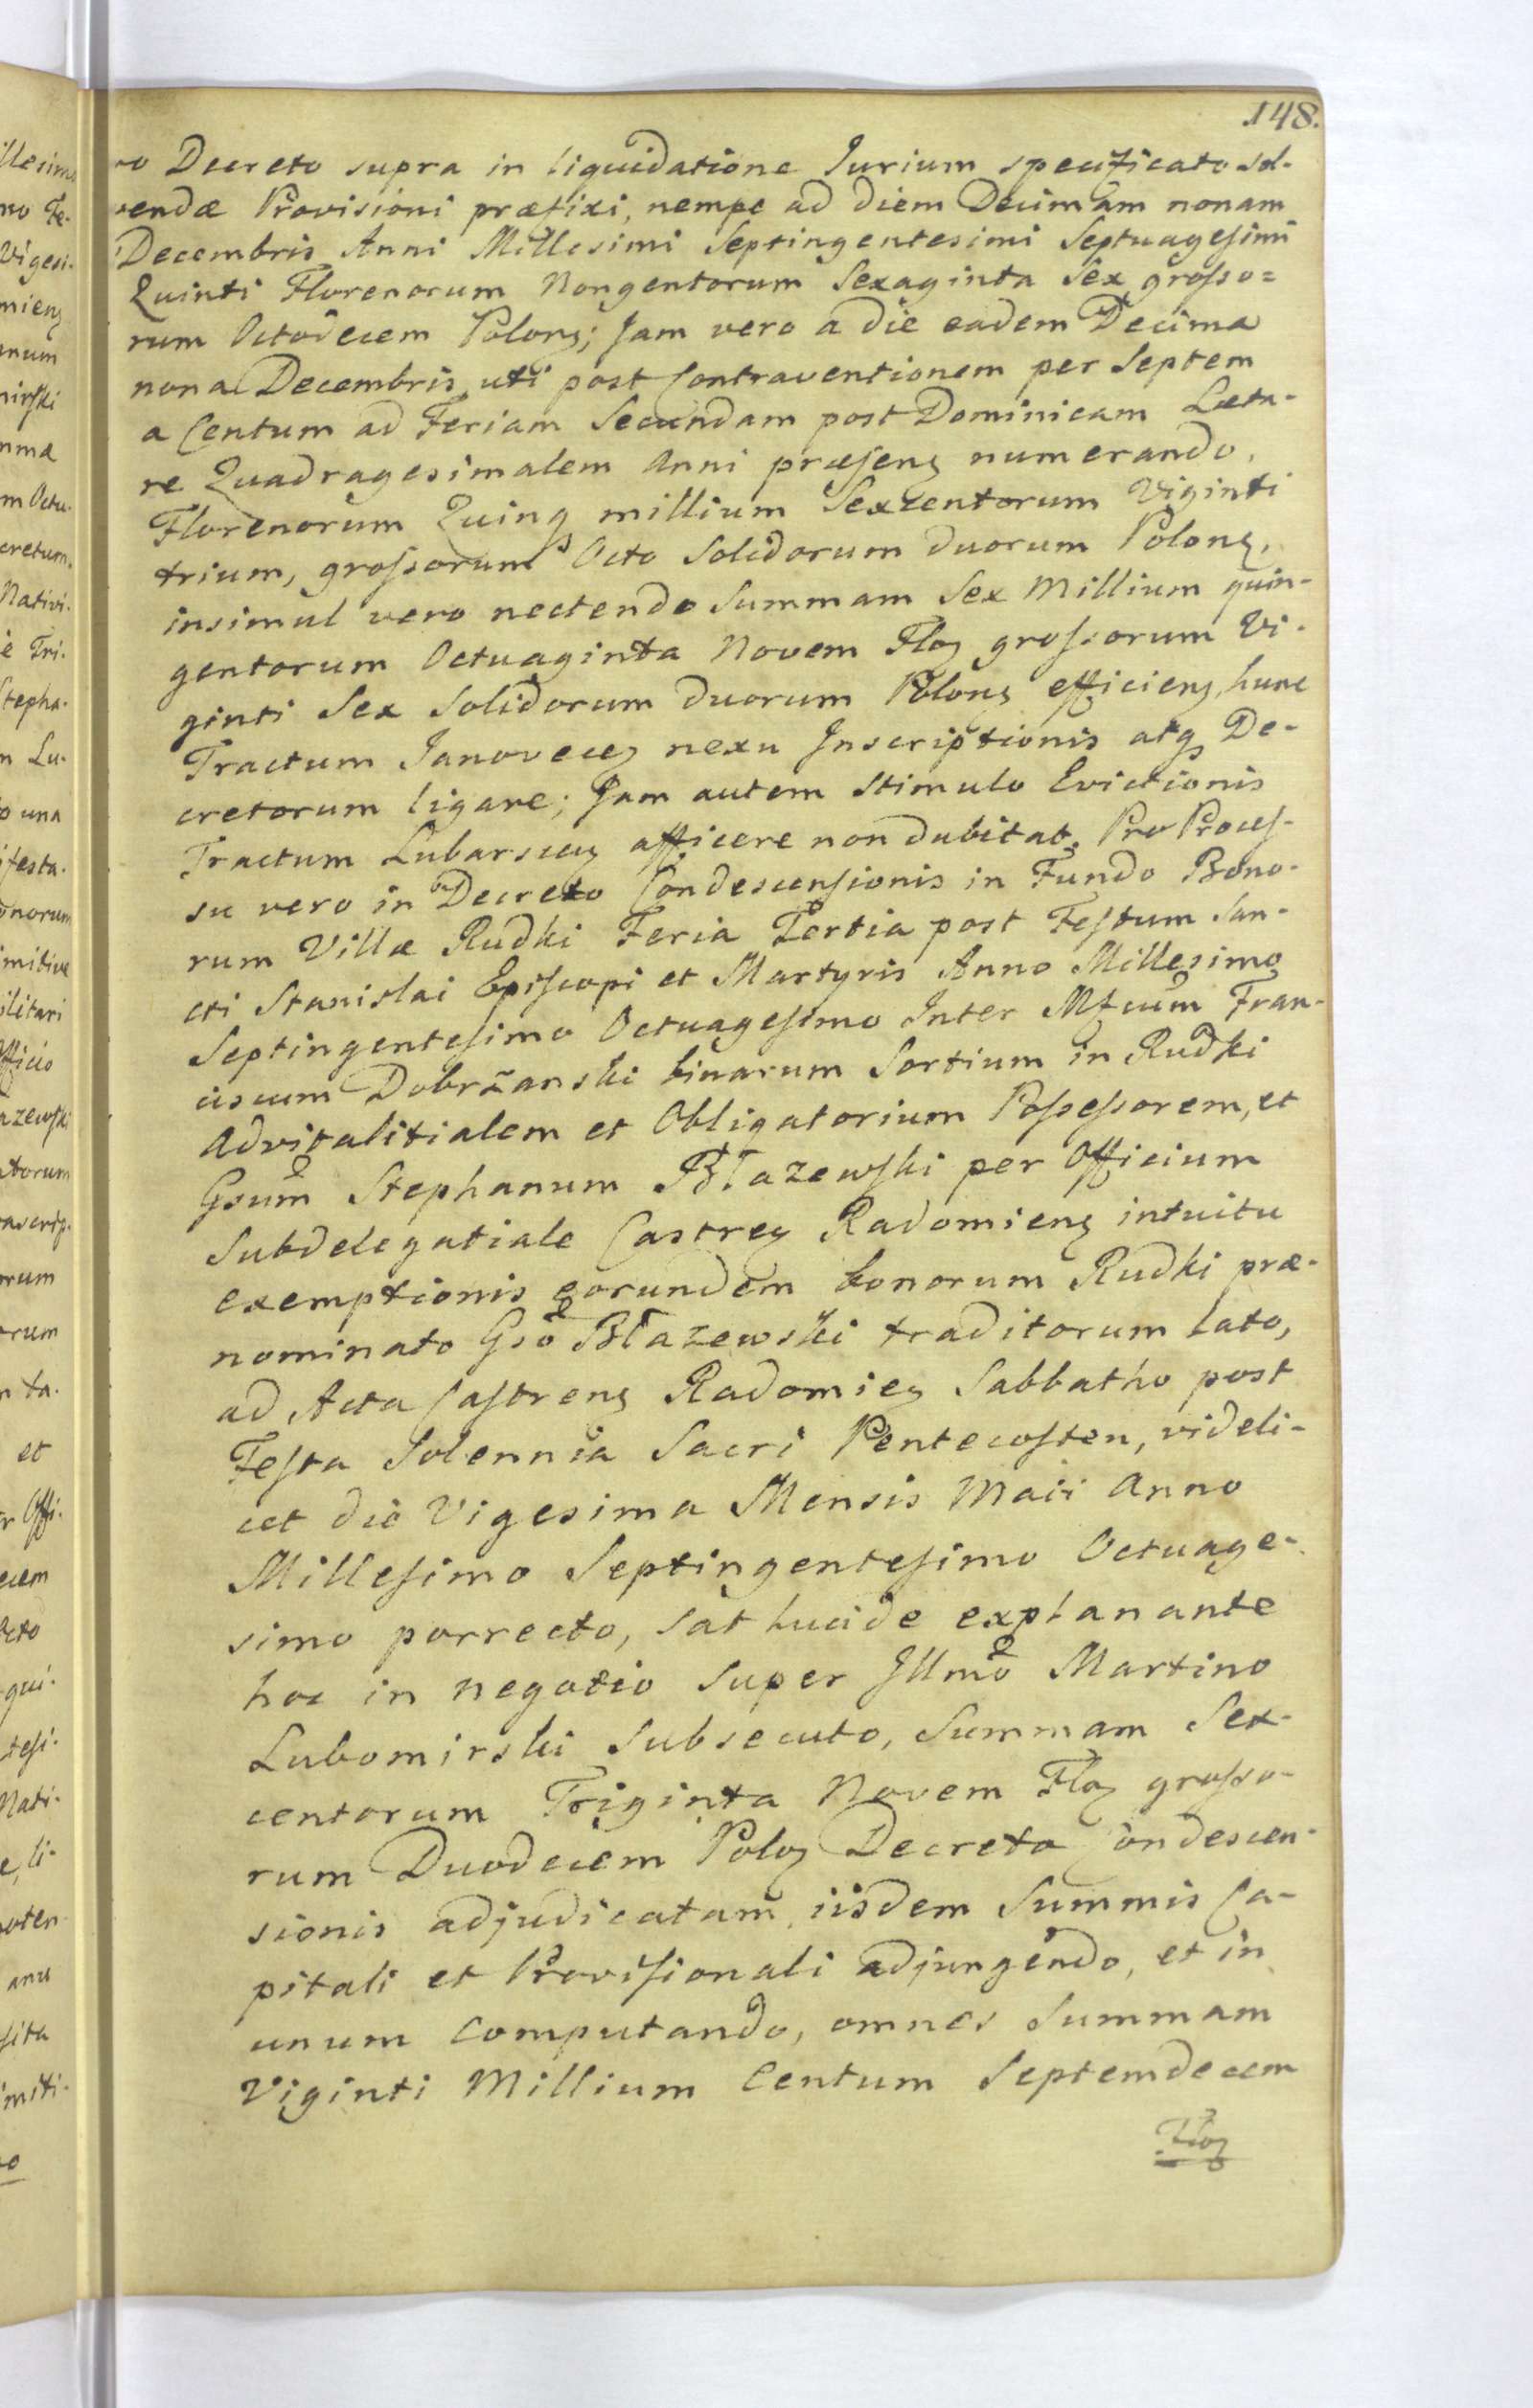 148.
ro Decreto supra in liquidatione Jurium specificato sol-
vendæ Provisioni præfixi, nempe ad diem Decimam nonam
Decembris Anni Millesimi Septingentesimi Septuagesimi
Quinti Florenorum Nongentorum Sexaginta Sex grosso=
rum Octodecem Polonz; Jam vero a die eadem Decima
nona Decembris, uti post Contraventionem per Septem
a Centum ad Feriam Secundam post Dominicam Læta-
re Quadragesimalem Anni præsenz numerando,
Florenorum Quinqz millium Sexcentorum Viginti
trium, grossorum Octo Solidorum duorum Polonz,
insimul vero nectendo Summam Sex Millium quin-
gentorum Octuaginta Novem Floz grossorum Vi-
ginti Sex Solidorum duorum Polonz efficienz, hunc
Tractum Janovecez nexu Inscriptionis atqz De-
cretorum ligare; Jam autem stimulo Evictionis
Tractum Lubarscez afficere non dubitat. Pro Proces-
su vero in Decreto Condescensionis in Fundo Bono-
rum Villæ Rudki Feria Tertia post Festum San-
cti Stanislai Episcopi et Martyris Anno Millesimo
Septingentesimo Octuagesimo Inter Mfcum Fran-
ciscum Dobrzanski binarum Sortium in Rudki
Advitalitialem et Obligatorium Possessorem, et
Gsum Stephanum Błazewski per Officium
Subdelegatiale Castrez Radomienz intuitu
exemptionis eorundem bonorum Rudki præ-
nominato Gso Błazewski traditorum lato,
ad Acta Castrenz Radomiez Sabbatho post
Festa Solennia Sacri Pentecosten, videli-
cet die Vigesima Mensis Maii Anno
Millesimo Septingentesimo Octuage-
simo porrecto, sat lucide explanante
hoc in negotio super Illmo Martino
Lubomirski Subsecuto, Summam Sex-
centorum Triginta Novem Floz grosso-
rum Duodecem Poloz Decreto Condescen-
sionis adjudicatam, iisdem Summis Ca-
pitali et Provisionali adjungendo, et in
unum computando, omnes Summam
Viginti Millium Centum Septemdecem
Floz